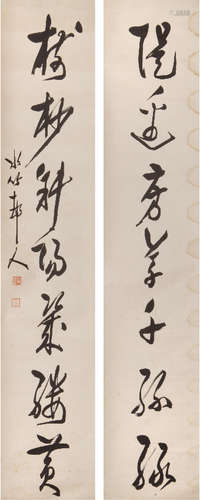 隄邊芳草千絲綠
樹杪斜陽萬縷黃
水竹邨人